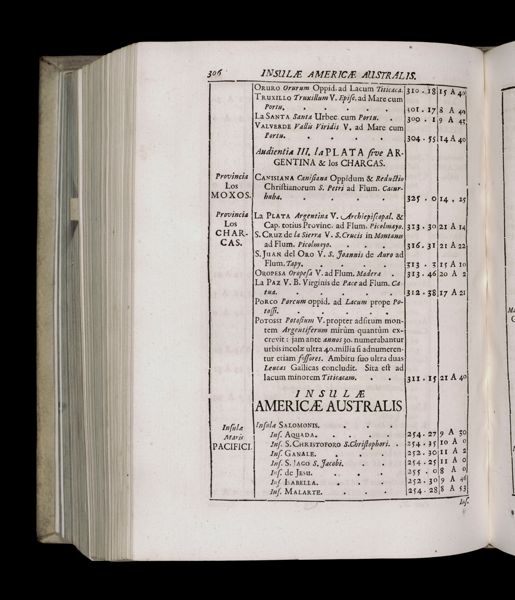 306 INSULÆ AMERICÆ AUSTRALIS.
ORURO Orurum Oppid. ad Lacum Titicaca. 310 . 18 15 A 40
TRUXILLO Truxillum V. Episc. ad Mare cum
Portu. . . . . 301 . 17 8 A 40
LA SANTA Santa Urbec. cum Portu. . 300 . 1 9 A 45
VALVERDE Vallis Viridis V. ad Mare cum
Portu. . . . . 304 . 55 14 A 40
Audientia III. la PLATA sive AR-
GENTINA & los CHARCAS.
Provincia
Los
MOXOS.
CANISIANA Canisiana Oppidum & Reductio
Christianorum S. Petri ad Flum. Cacur-
huba. . . . . 325 . 0 14 . 25
Provincia
Los
CHAR-
CAS.
LA PLATA Argentina V. Archiepiscopal. &
Cap. totius Provinc. ad Flum. Picolmayo. 313 . 30 21 A 14
S. CRUZ de la Sierra V. S. Crucis in Montanis
ad Flum. Picolmayo. . . . 316 . 31 21 A 22
S. JUAN del ORO V. S. Joannis de Auro ad
Flum. Tapy. . . . . 313 . 3 15 A 10
OROPESA Oropesa V. ad Flum. Madera . 313 . 46 20 A 2
LA PAZ V. B. Virginis de Pace ad Flum. Ca-
tua. . . . . 312 . 38 17 A 21
PORCO Porcum oppid. ad Lacum prope Po-
tossi. . . . .
POTOSSI Potosium V. propter adsitum mon-
tem Argentiferum mirùm quantùm ex-
crevit : jam ante annos 50. numerabantur
urbis incolæ ultra 40. millia si adnumeren-
tur etiam fossores. Ambitu suo ultra duas
Leucas Gallicas concludit. Sita est ad
lacum minorem Titicacam. . . 311 . 15 21 A 40
INSULÆ
AMERICÆ AUSTRALIS
Insulæ
Maris
PACIFICI.
Insulæ SALOMONIS. . . .
Ins. AQUADA. . . . 254 . 27 9 A 50
Ins. S. CHRISTOFORO S. Christophori. . 254 . 35 10 A 0
Ins. GANALE. . . . 252 . 30 11 A 2
Ins. S. JAGO S. Jacobi. . . 254 . 25 11 A 0
Ins. de JESU. . . . 255 . 0 8 A 0
Ins. ISABELLA. . . . 252 . 30 9 A 46
Ins. MALARTE. . . . 254 . 28 8 A 53
Ins.